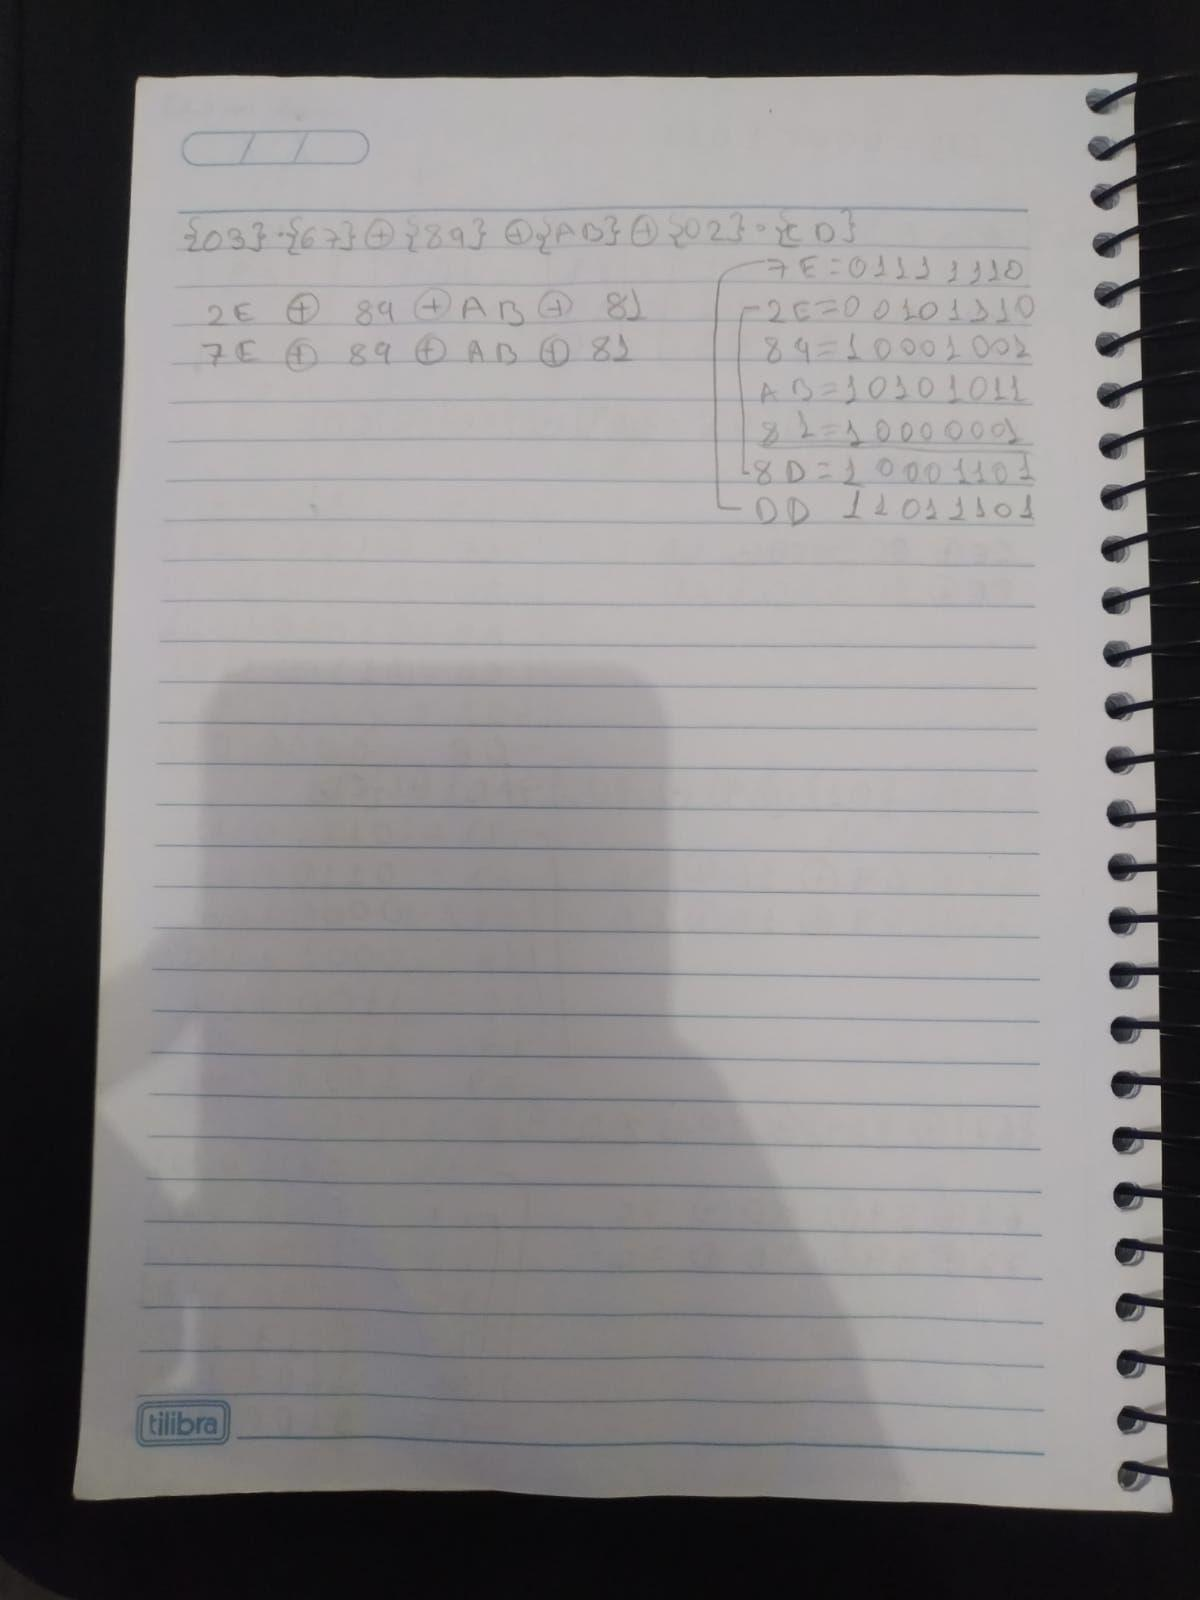 {03}·{67} ⊕ {89} ⊕ {AB} ⊕ {02}·{CD}
7E = 01111110
2E ⊕ 89 ⊕ AB ⊕ 81
2E = 00101110
7E ⊕ 89 ⊕ AB ⊕ 81
89 = 10001001
AB = 10101011
81 = 10000001
8D = 10001101
DD 11011101
tilibra